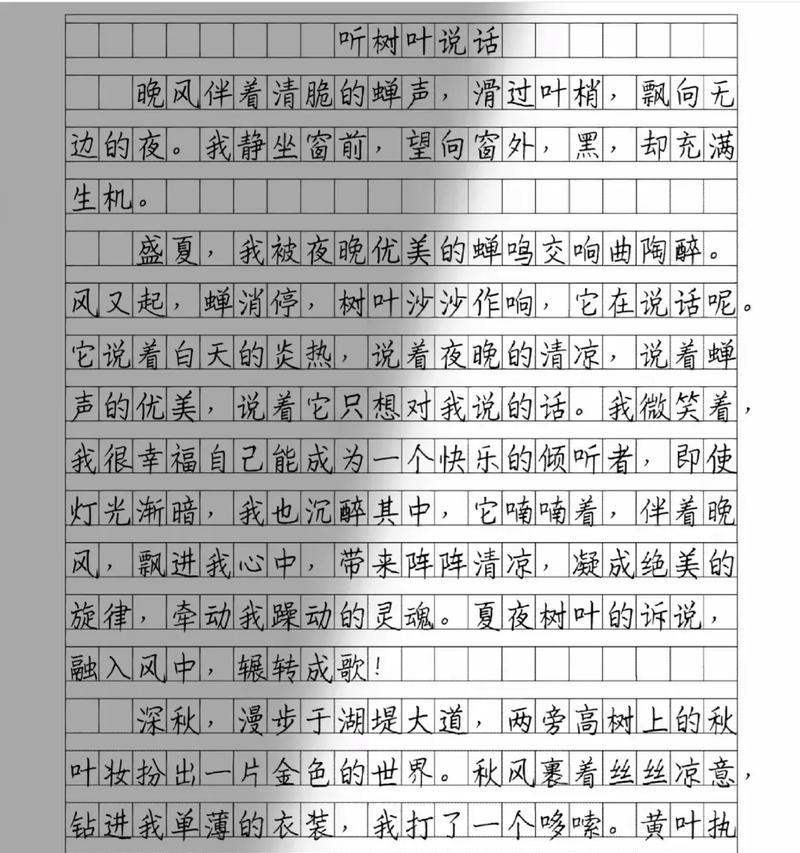 听树叶说话
晚风伴着清脆的蝉声，滑过叶梢，飘向无
边的夜。我静坐窗前，望向窗外，黑，却充满
生机。
盛夏，我被夜晚优美的蝉鸣交响曲陶醉。
风又起，蝉消停，树叶沙沙作响，它在说话呢。
它说着白天的炎热，说着夜晚的清凉，说着蝉
声的优美，说着它只想对我说的话。我微笑着，
我很幸福自己能成为一个快乐的倾听者，即使
灯光渐暗，我也沉醉其中，它喃喃着，伴着晚
风，飘进我心中，带来阵阵清凉，凝成绝美的
旋律，牵动我躁动的灵魂。夏夜树叶的诉说，
融入风中，辗转成歌！
深秋，漫步于湖堤大道，两旁高树上的秋
叶妆扮出一片金色的世界。秋风裹着丝丝凉意，
钻进我单薄的衣装，我打了一个哆嗦。黄叶执